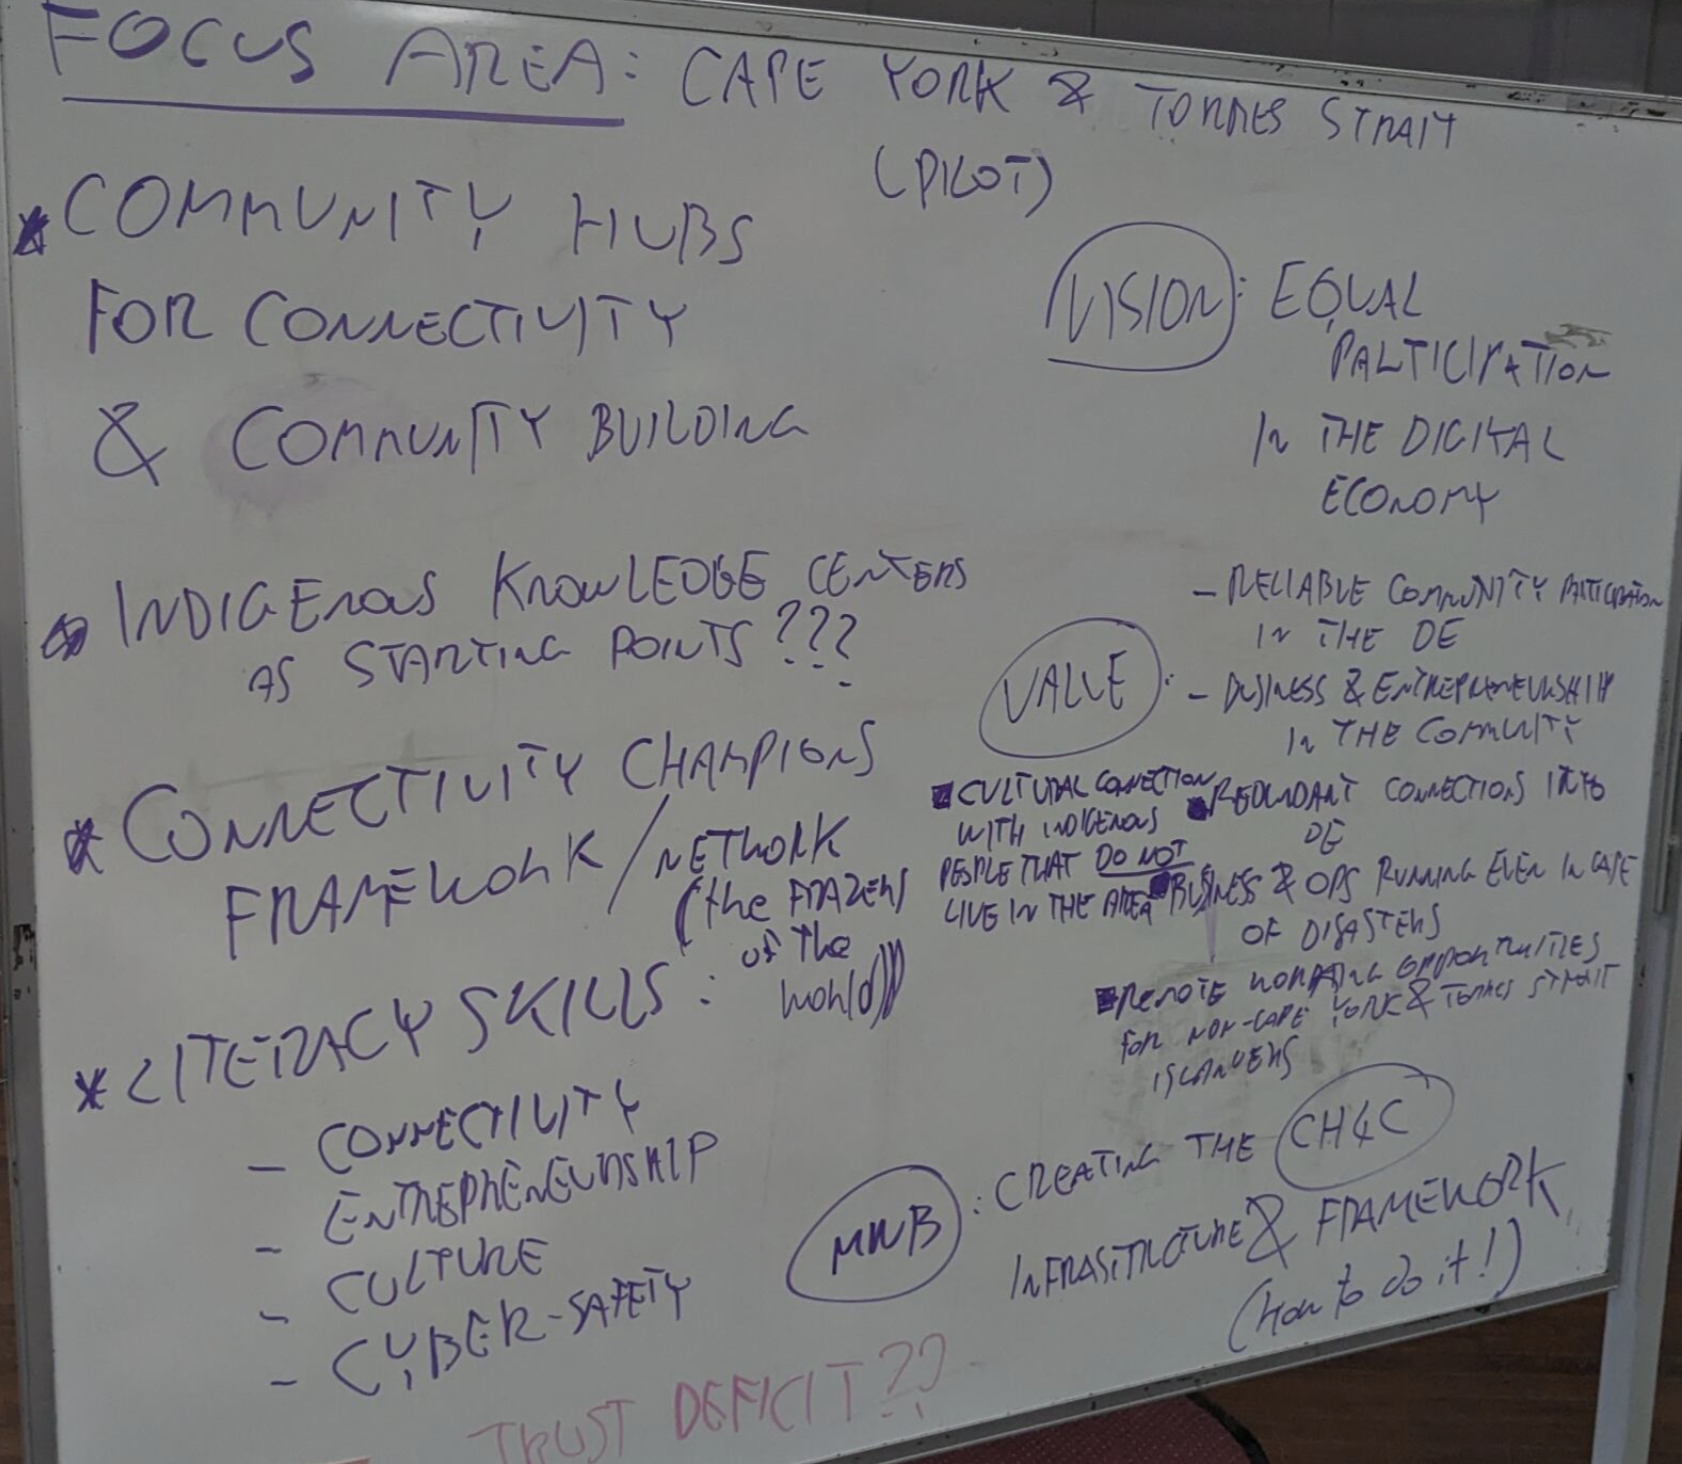 FOCUS AREA: CAPE YORK & TORRES STRAIT
(PILOT)
* COMMUNITY HUBS
FOR CONNECTIVITY
& COMMUNITY BUILDING
INDIGENOUS KNOWLEDGE CENTERS
AS STARTING POINTS???
* CONNECTIVITY CHAMPIONS
FRAMEWORK / NETWORK
(the FRAZERS
of the
world))
* LITERACY SKILLS:
- CONNECTIVITY
- ENTREPRENEURSHIP
- CULTURE
- CYBER-SAFETY
TRUST DEFICIT??
VISION: EQUAL
PARTICIPATION
IN THE DIGITAL
ECONOMY
VALUE:
- RELIABLE COMMUNITY PARTICIPATION
IN THE DE
- BUSINESS & ENTREPRENEURSHIP
IN THE COMMUNITY
CULTURAL CONNECTION
WITH INDIGENOUS
PEOPLE THAT DO NOT
LIVE IN THE AREA
REDUNDANT CONNECTIONS INTO
DE
BUSINESS & OPS RUNNING EVEN IN CASE
OF DISASTERS
REMOTE WORKING OPPORTUNITIES
FOR NON-CAPE YORK & TORRES STRAIT
ISLANDERS
MWB: CREATING THE CH4C
INFRASTRUCTURE & FRAMEWORK
(how to do it!)